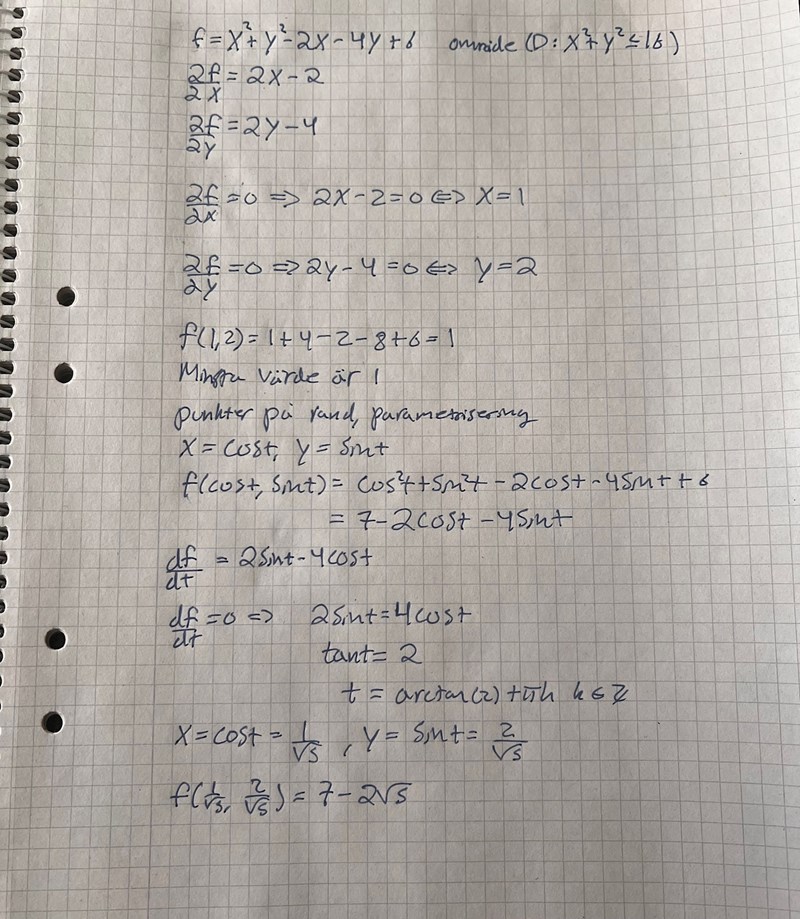 f = x² + y² - 2x - 4y + 6 område (D: x² + y² ≤ 16)
∂f/∂x = 2x - 2
∂f/∂y = 2y - 4
∂f/∂x = 0 ⇒ 2x - 2 = 0 ⇔ x = 1
∂f/∂y = 0 ⇒ 2y - 4 = 0 ⇔ y = 2
f(1,2) = 1 + 4 - 2 - 8 + 6 = 1
Minsta värde är 1
punkter på rand, parametrisering
x = cost, y = sint
f(cost, sint) = cos²t + sin²t - 2cost - 4sint + 6
= 7 - 2cost - 4sint
df/dt = 2sint - 4cost
df/dt = 0 ⇒ 2sint = 4cost
tant = 2
t = arctan(2) + πk k ∈ ℤ
x = cost = 1/√5, y = sint = 2/√5
f(1/√5, 2/√5) = 7 - 2√5